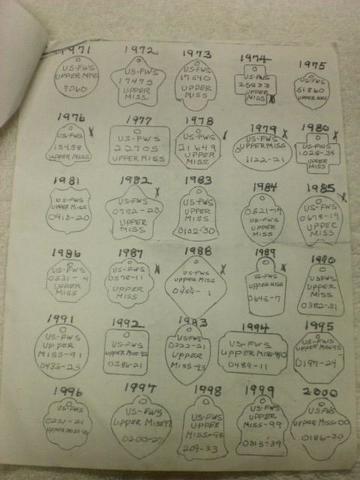 1971
US-FWS
UPPER MISS
9060
1972
US-FWS
17475
UPPER
MISS
1973
US-FWS
17640
UPPER
MISS
1974
US-FWS
UPPER
MISS
1975
US-FWS
61860
UPPER
MISS
1976
US-FWS
15458
UPPER MISS
1977
US-FWS
22705
UPPER MISS
1978
US-FWS
21649
UPPER
MISS
1979
US-FWS
UPPER MISS
1122-21
1980
US-FWS
UPPER
MISS
1981
US-FWS
UPPER MISS
0913-20
1982
US-FWS
UPPER
MISS
1983
US-FWS
UPPER
MISS
0102-30
1984
US-FWS
UPPER
MISS
1985
US-FWS
0678-19
UPPER
MISS
1986
US-FWS
UPPER
MISS
1987
US-FWS
0578-11
UPPER
MISS
1988
US-FWS
UPPER MISS
1989
US-FWS
UPPER MISS
0645-7
1990
US-FWS
UPPER
MISS
0382-21
1991
US-FWS
UPPER
MISS-91
0435-25
1992
US-FWS
UPPER MISS-92
0286-21
1993
US-FWS
0222-21
UPPER
MISS-93
1994
US-FWS
UPPER MISS
0489-11
1995
US-FWS
UPPER MISS95
0197-24
1996
US-FWS
0231-21
1997
US-FWS
UPPER MISS97
0200-27
1998
US-FWS
UPPER
MISS-98
209-33
1999
US-FWS
UPPER
MISS-99
0313-39
2000
US-FWS
UPPER MISS00
0186-30